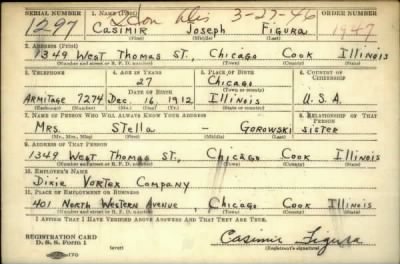 SERIAL NUMBER 1. NAME (Print) 3-27-46 ORDER NUMBER
1297 CASIMIR JOSEPH FIGURA 1947
(First) (Middle) (Last)
2. ADDRESS (Print)
1349 WEST THOMAS ST., CHICAGO COOK ILLINOIS
(Number and street or R. F. D. number) (Town) (County) (State)
3. TELEPHONE 4. AGE IN YEARS 5. PLACE OF BIRTH 6. COUNTRY OF CITIZENSHIP
27 CHICAGO
DATE OF BIRTH (Town or county)
ARMITAGE 7274 DEC 16 1912 ILLINOIS U.S.A.
(Exchange) (Number) (Mo.) (Day) (Yr.) (State or country)
7. NAME OF PERSON WHO WILL ALWAYS KNOW YOUR ADDRESS 8. RELATIONSHIP OF THAT PERSON
MRS. STELLA - GOROWSKI SISTER
(Mr., Mrs., Miss) (First) (Middle) (Last)
9. ADDRESS OF THAT PERSON
1349 WEST THOMAS ST., CHICAGO COOK ILLINOIS
(Number and street or R. F. D. number) (Town) (County) (State)
10. EMPLOYER'S NAME
DIXIE VORTEX COMPANY
11. PLACE OF EMPLOYMENT OR BUSINESS
401 NORTH WESTERN AVENUE, CHICAGO COOK ILLINOIS
(Number and street or R. F. D. number) (Town) (County) (State)
I AFFIRM THAT I HAVE VERIFIED ABOVE ANSWERS AND THAT THEY ARE TRUE.
REGISTRATION CARD
D. S. S. Form 1 (over) Casimir Figura
(Registrant's signature)